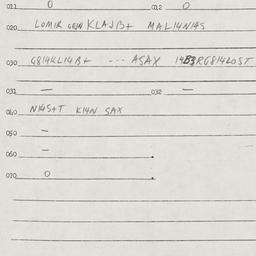 011 0 012 0
020 LOMIR GEJN KLAJB+ MAL14N14S
030 G814KL14B+ --- ASAX 14B3RG814LOST
031 — 032 —
040 N14S+T K14N SAX
050 —
060 —
070 0